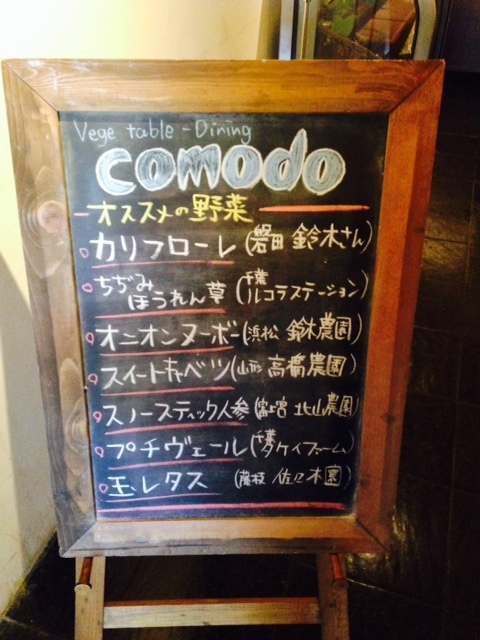 Vege table - Dining
comodo
オススメの野菜
カリフローレ(磐田 鈴木さん)
ちぢみほうれん草(千葉 ルコラステーション)
オニオンヌーボー(浜松 鈴木農園)
スイートキャベツ(山形 高橋農園)
スノースティック人参(富士宮 北山農園)
プチヴェール(千葉 タケイファーム)
玉レタス(藤枝 佐々木園)